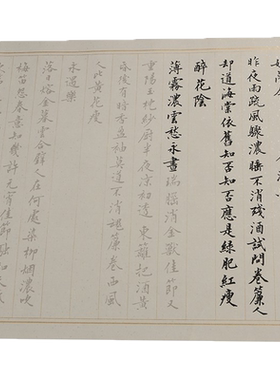 昨夜雨疏風驟濃睡不消殘酒試問卷簾人
却道海棠依舊知否知否應是綠肥紅瘦
醉花陰
薄霧濃雲愁永晝瑞腦消金獸佳節又
重陽玉枕紗廚半夜涼初透東籬把酒黃
昏後有暗香盈袖莫道不消魂簾卷西風
人比黃花瘦
永遇樂
落日熔金暮雲合璧人在何處染柳烟濃吹
梅笛怨春意知幾許元宵佳節融和天